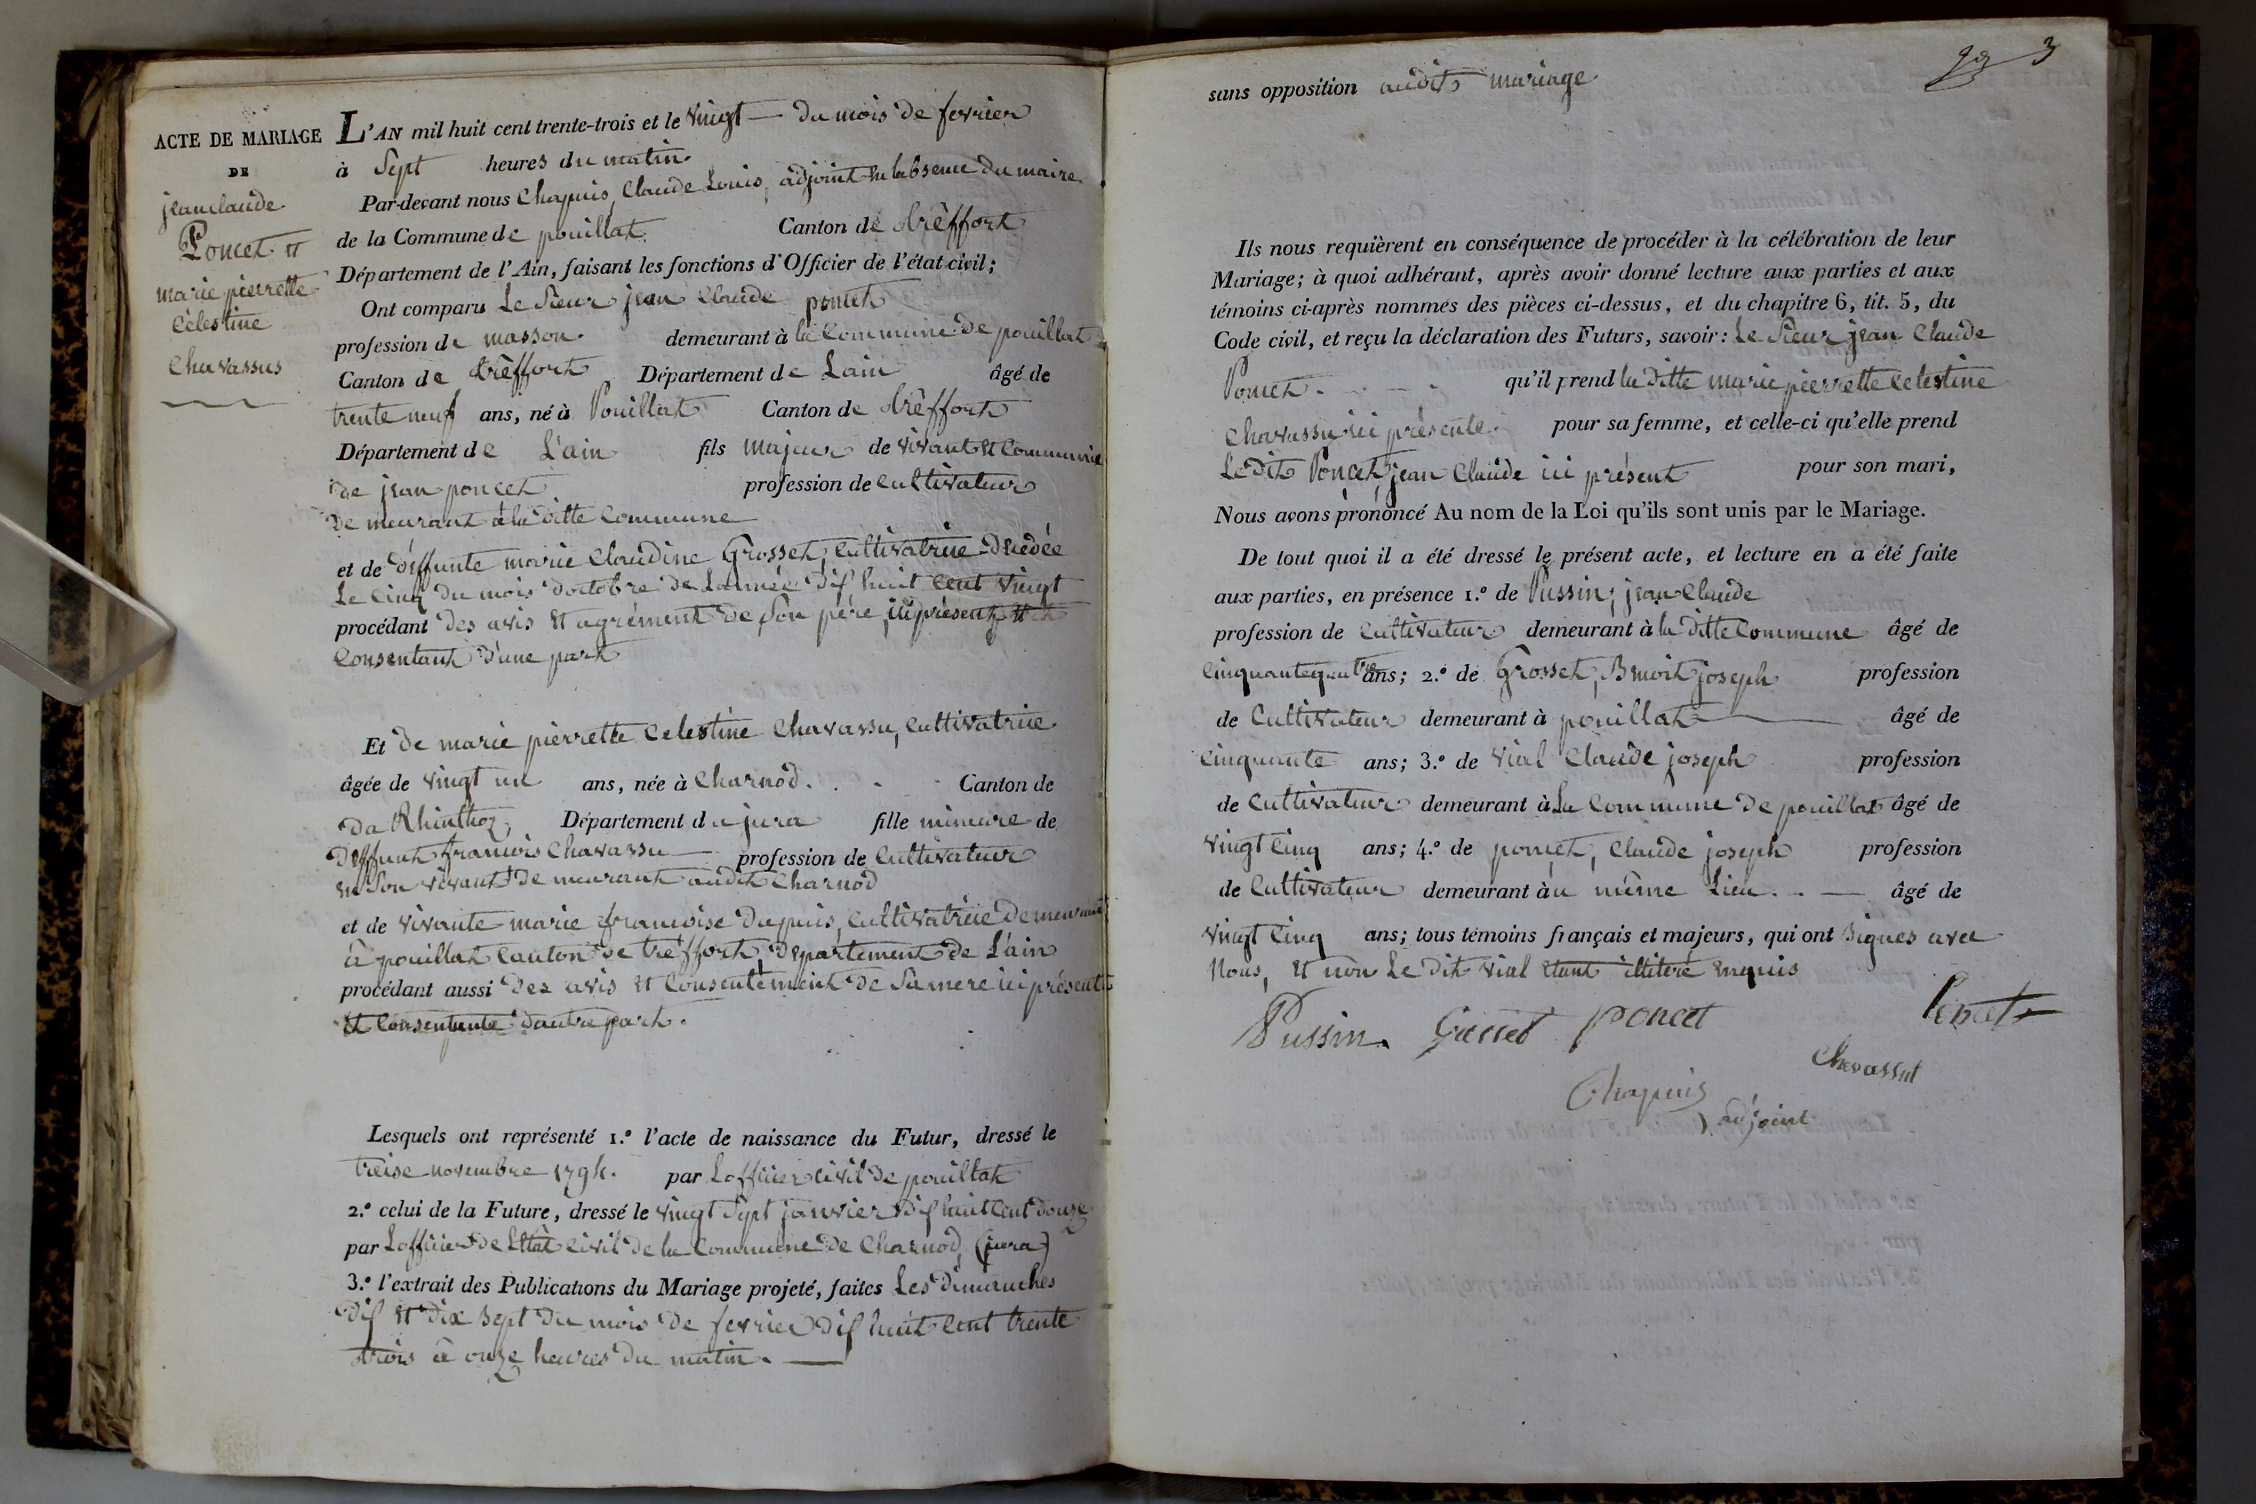 ACTE DE MARIAGE
DE
jean claude
Poncet et
marie pierrette
Célestine
Chavassus
L'AN mil huit cent trente-trois et le vingt — du mois de fevrier
à Sept heures du matin
Par-devant nous Chapuis, Claude Louis, adjoint en labsence du maire
de la Commune de pouillat Canton de trêffort
Département de l'Ain, faisant les fonctions d'Officier de l'état civil;
Ont comparu Le Sieur jean Claude poncet
profession de masson demeurant à la Commune de pouillat
Canton de trêffort Département de Lain âgé de
trente neuf ans, né à Pouillat Canton de trêffort
Département de L'ain fils majeur de vivant et Commune
de jean poncet profession de Cultivateur
demeurant à la ditte Commune
et de déffunte marie Claudine Grosset, Cultivatrice décédée
Le Cinq du mois doctobre de Lannée dif huit Cent vingt
procédant des avis et agrément de Son père, ici présent et
Consentant d'une part
Et de marie pierrette Celestine Chavassu, Cultivatrice
âgée de vingt un ans, née à Charnod Canton de
Da Rhinthoz, Département du jura fille mineure de
deffunt francois Chavassu — profession de Cultivateur
en Son vivant demeurant audit Charnod
et de vivante marie francoise dupuis, Cultivatrice demeurant
à pouillat Canton de trêffort, département de L'ain
procédant aussi des avis et Consentement de Samere ici présente
et Consentante dautre part.
Lesquels ont représenté 1.º l'acte de naissance du Futur, dressé le
treise novembre 1794. par Lofficier civil de pouillat
2.º celui de la Future, dressé le vingt Sept janvier dif huit Cent douze
par Lofficier de L'Etat Civil de la Commune de Charnod, (jura)
3.º l'extrait des Publications du Mariage projeté, faites Les dimanches
dif et dix Sept du mois de fevrier dif huit Cent trente
trois à onze heures du matin. —
3
sans opposition audit mariage
Ils nous requièrent en conséquence de procéder à la célébration de leur
Mariage; à quoi adhérant, après avoir donné lecture aux parties et aux
témoins ci-après nommés des pièces ci-dessus, et du chapitre 6, tit. 5, du
Code civil, et reçu la déclaration des Futurs, savoir: Le Sieur jean Claude
Poncet qu'il prend la ditte marie pierrette Celestine
Chavassu ici présente pour sa femme, et celle-ci qu'elle prend
Ledit Poncet, jean Claude ici présent pour son mari,
Nous avons prononcé Au nom de la Loi qu'ils sont unis par le Mariage.
De tout quoi il a été dressé le présent acte, et lecture en a été faite
aux parties, en présence 1.º de Pussin, jean Claude
profession de Cultivateur demeurant à la ditte Commune âgé de
Cinquantequatre ans; 2.º de Grosset, Benoit joseph profession
de Cultivateur demeurant à pouillat — âgé de
Cinquante ans; 3.º de vial Claude joseph profession
de Cultivateur demeurant à La Commune de pouillat âgé de
vingt Cinq ans; 4.º de poncet, Claude joseph profession
de Cultivateur demeurant àu même Lieu — âgé de
vingt Cinq ans; tous témoins français et majeurs, qui ont Signés avec
Nous, et non Le dit vial étant illiteré enquis
Pussin Grosset poncet Poncet
Chevassut
Chapuis
adjoint